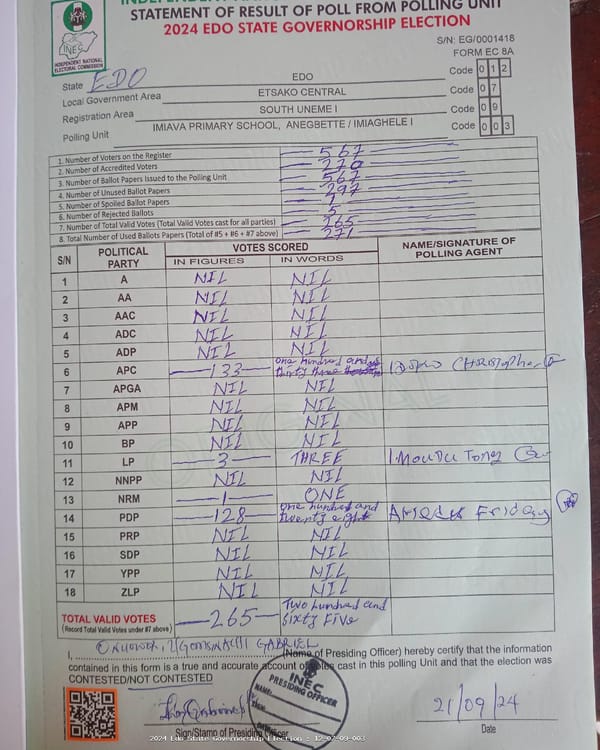 STATEMENT OF RESULT OF POLL FROM POLLING UNIT
2024 EDO STATE GOVERNORSHIP ELECTION
INEC
INDEPENDENT NATIONAL ELECTORAL COMMISSION
S/N: EG/0001418
FORM EC 8A
State EDO EDO Code 0 1 2
Local Government Area ETSAKO CENTRAL Code 0 7
Registration Area SOUTH UNEME I Code 0 9
Polling Unit IMIAVA PRIMARY SCHOOL, ANEGBETTE / IMIAGHELE I Code 0 0 3
1. Number of Voters on the Register 567
2. Number of Accredited Voters 270
3. Number of Ballot Papers Issued to the Polling Unit 567
4. Number of Unused Ballot Papers 297
5. Number of Spoiled Ballot Papers 1
6. Number of Rejected Ballots 5
7. Number of Total Valid Votes (Total Valid Votes cast for all parties) 265
8. Total Number of Used Ballots Papers (Total of #5 + #6 + #7 above) 271
S/N POLITICAL PARTY VOTES SCORED NAME/SIGNATURE OF POLLING AGENT
IN FIGURES IN WORDS
1 A NIL NIL
2 AA NIL NIL
3 AAC NIL NIL
4 ADC NIL NIL
5 ADP NIL NIL
6 APC 133 one hundred and thirty three
7 APGA NIL NIL
8 APM NIL NIL
9 APP NIL NIL
10 BP NIL NIL
11 LP 3 THREE
12 NNPP NIL NIL
13 NRM 1 ONE
14 PDP 128 one hundred and twenty eight Friday
15 PRP NIL NIL
16 SDP NIL NIL
17 YPP NIL NIL
18 ZLP NIL NIL
TOTAL VALID VOTES 265 Two hundred and sixty Five
(Record Total Valid Votes under #7 above)
I, GABRIEL (Name of Presiding Officer) hereby certify that the information
contained in this form is a true and accurate account of votes cast in this polling Unit and that the election was
CONTESTED/NOT CONTESTED
INEC
PRESIDING OFFICER
NAME:
SIGN:
DATE:
21/09/24
Sign/Stamp of Presiding Officer Date
2024 Edo State Governorship Election : 12-07-09-003